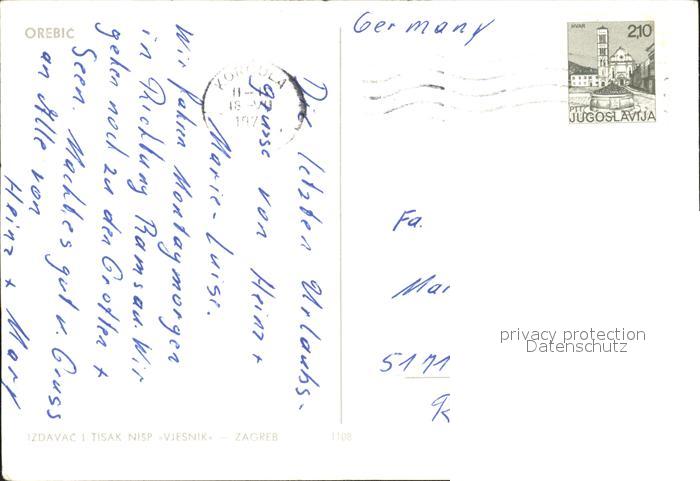 OREBIĆ
Die letzten Urlaubs-
grüsse von Heinz +
Marie-Luise.
Wir fahren Montagmorgen
in Richtung Ramsau. Wir
gehen noch zu den Grotten +
Seen. Macht es gut u. Gruss
an Alle von
Heinz + Mary
IZDAVAČ I TISAK NIŠP »VJESNIK« — ZAGREB
1108
KORČULA
Germany
HVAR
2,10
PTT
JUGOSLAVIJA
Fa.
5171
privacy protection
Datenschutz